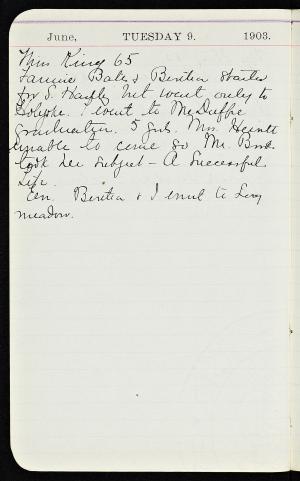 June, TUESDAY 9. 1903.
Mrs King 65
Fannie Bates & started
for S. Hadley but went only to
Holyoke. I went to McDuffie
graduation. 5 girls. Mrs.
unable to come so Mr.
took her subject - A Successful
Life.
Eve. & I went to Long
meadow.